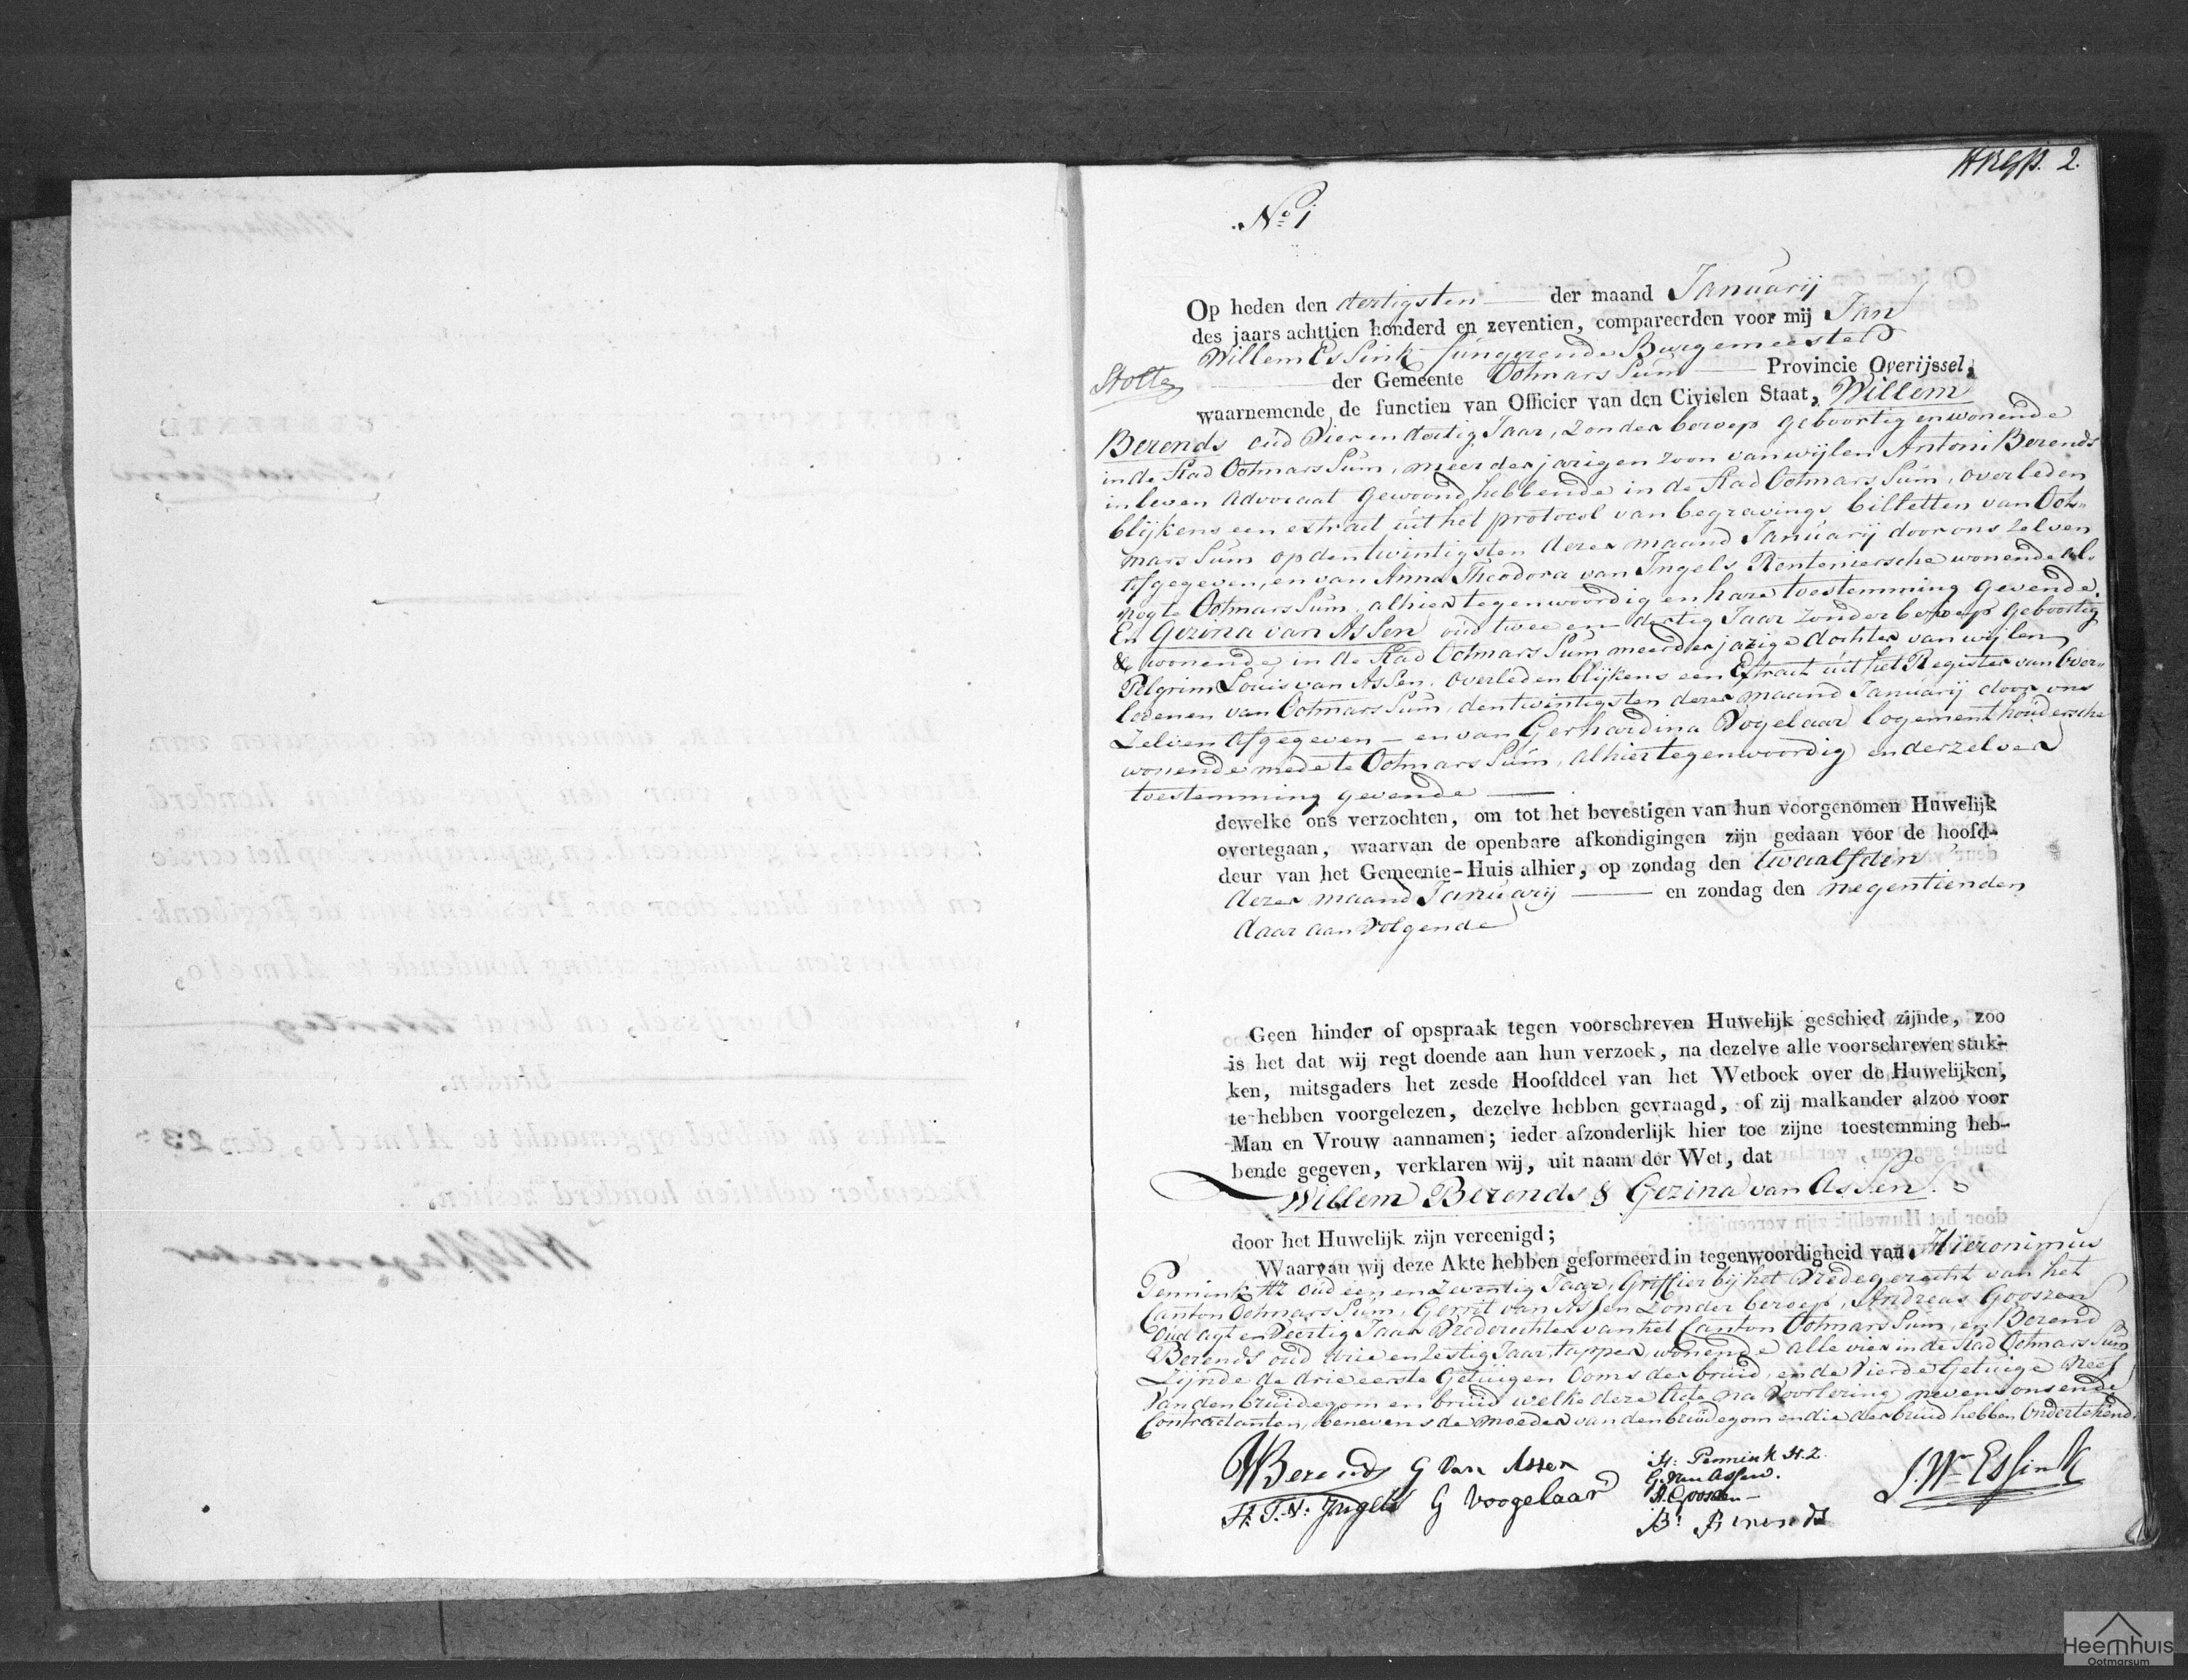 2.
No. 1
Op heden den dertigsten der maand Januarij
des jaars achttien honderd en zeventien, compareerden voor mij Jan
Willem Essink fungerende Burgemeester
Stolte
der Gemeente Ootmarssum Provincie Overijssel,
waarnemende de functien van Officier van den Civielen Staat, Willem
Berends oud Vier en dertig Jaar, zonder beroep geboortig en wonende
in de Stad Ootmarssum, meerderjarigen zoon van wijlen Antoni Berends
in leven Advocaat gewoond hebbende in de Stad Ootmarssum, overleden
blijkens een extract uit het protocol van begravings billetten van Oot-
marssum op den twintigsten dezer maand Januarij door ons zelven
afgegeven, en van Anna Theodora van Ingels Renteniersche wonende al
nog te Ootmarssum, alhier tegenwoordig en hare toestemming gevende.
En Gezina van Assen oud twee en dertig Jaar zonder beroep geboortig
& wonende in de Stad Ootmarssum meerderjarige dochter van wijlen
Pelgrim Louis van Assen, overleden blijkens een Extract uit het Register van Over-
ledenen van Ootmarssum, den twintigsten dezer maand Januarij door ons
Zelven afgegeven – en van Gerhardina Vogelaar logementhoudersche
wonende mede te Ootmarssum, alhier tegenwoordig en derzelver
toestemming gevende
dewelke ons verzochten, om tot het bevestigen van hun voorgenomen Huwelijk
overtegaan, waarvan de openbare afkondigingen zijn gedaan voor de hoofd-
deur van het Gemeente-Huis alhier, op zondag den twaalfden
dezer maand Januarij en zondag den negentienden
daar aan volgende
Geen hinder of opspraak tegen voorschreven Huwelijk geschied zijnde, zoo
is het dat wij regt doende aan hun verzoek, na dezelve alle voorschreven stuk-
ken, mitsgaders het zesde Hoofddeel van het Wetboek over de Huwelijken,
te hebben voorgelezen, dezelve hebben gevraagd, of zij malkander alzoo voor
Man en Vrouw aannamen; ieder afzonderlijk hier toe zijne toestemming heb-
bende gegeven, verklaren wij, uit naam der Wet, dat
Willem Berends & Gezina van Assen.
door het Huwelijk zijn vereenigd;
Waarvan wij deze Akte hebben geformeerd in tegenwoordigheid van Hieronimus
Pennink Hz oud een en zeventig Jaar, Griffier bij het Vredegerecht van het
Canton Ootmarssum, Gerrit van Assen zonder beroep, Andreas Goossen
oud agt en Veertig Jaar Vrederechter van het Canton Ootmarssum, en Berend
Berends oud drie en zestig Jaar tapper wonende alle vier in de Stad Ootmarssum
Zijnde de drie eerste Getuigen Ooms der bruid, en de Vierde Getuige Neef
van den bruidegom en bruid welke deze Acte na Voorlezing nevens ons en de
Contractanten, benevens de moeder van den bruidegom en die der bruid hebben Ondertekend.
WBerends G van Assen
H: Pennink H.Z.
G. van Assen.
A. Goossen
B: Berends
Ingels G Voogelaar
J. Wm Essink
Heemhuis
Ootmarsum